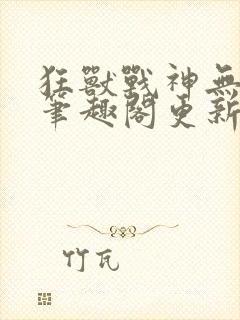 狂獸戰神無
筆趣閣更新
竹瓦